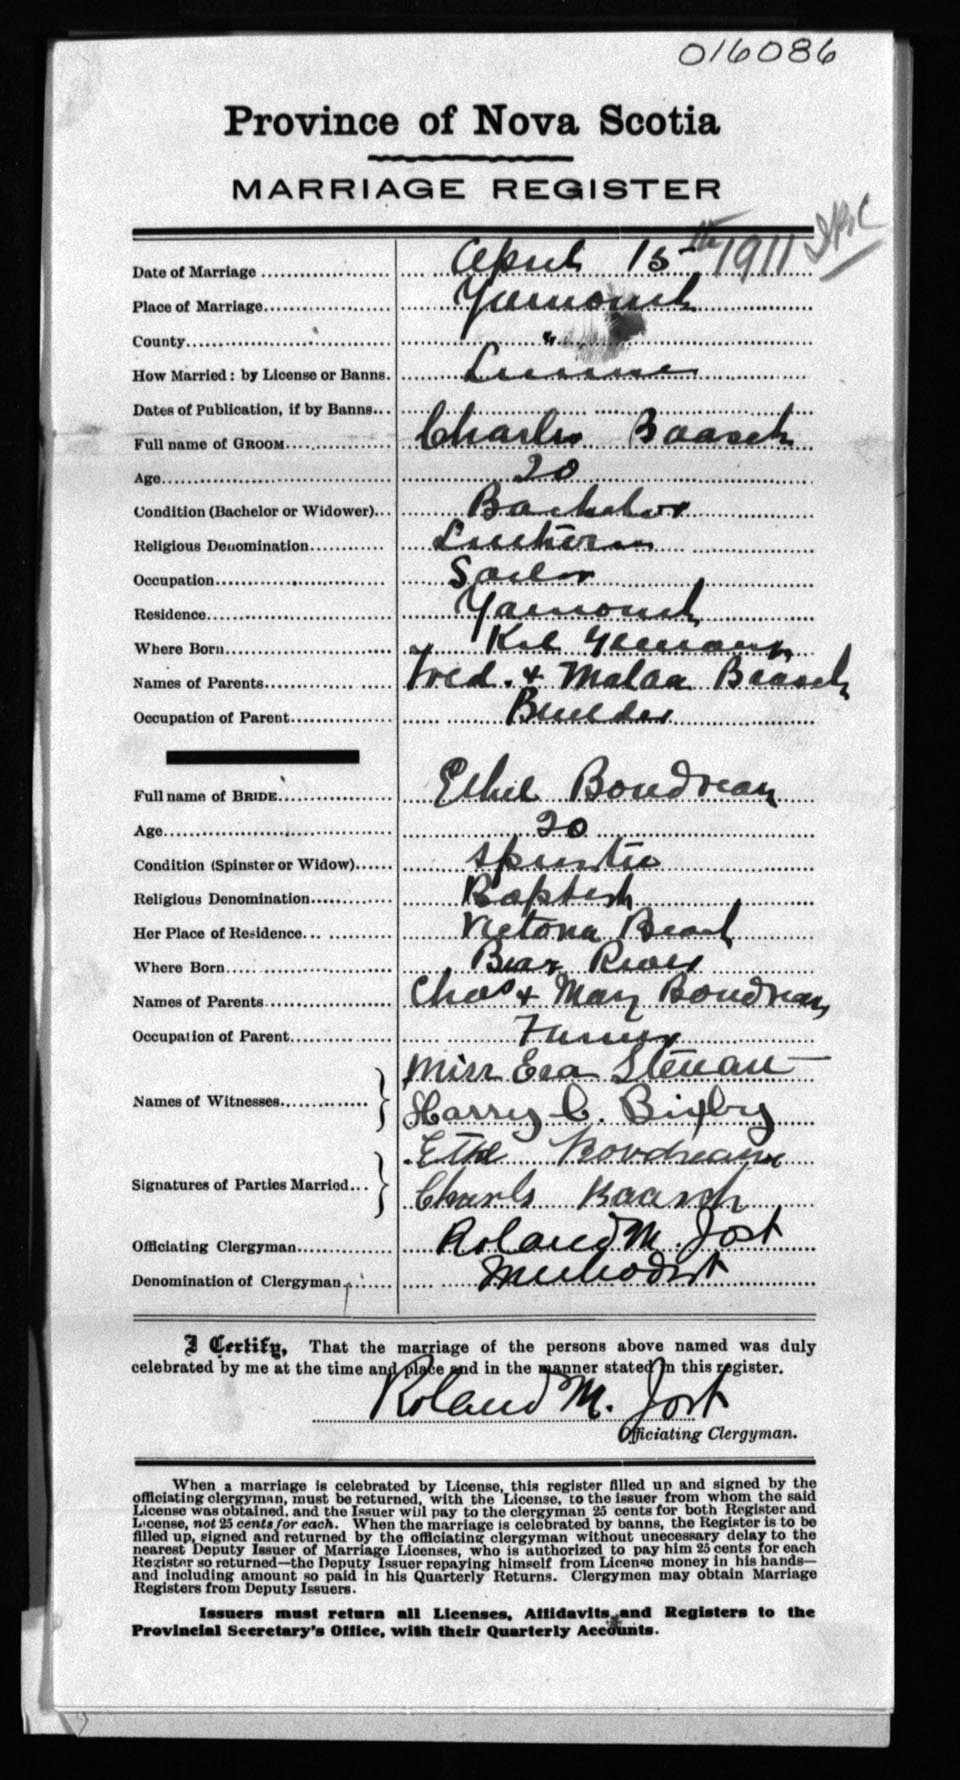 016086
Province of Nova Scotia
MARRIAGE REGISTER
Date of Marriage .... April 15th 1911
Place of Marriage .... Yarmouth
County .... "
How Married: by License or Banns. License
Dates of Publication, if by Banns...
Full name of GROOM.... Charles Baasch
Age.... 20
Condition (Bachelor or Widower)... Bachelor
Religious Denomination.... Lutheran
Occupation.... Sailor
Residence.... Yarmouth
Where Born.... Kiel Germany
Names of Parents.... Fred. & Baasch
Occupation of Parent.... Builder
Full name of BRIDE.... Ethel Boudreau
Age.... 20
Condition (Spinster or Widow).... Spinster
Religious Denomination.... Baptist
Her Place of Residence.... Victoria Beach
Where Born.... Bear River
Names of Parents.... Chas & Mary Boudreau
Occupation of Parent.... Farmer
Miss Eva Stewart
Names of Witnesses....
Harry C. Bixby
Ethel Boudreau
Signatures of Parties Married...
Charls Baasch
Officiating Clergyman.... Roland M. Jost
Denomination of Clergyman.... Methodist
I Certify, That the marriage of the persons above named was duly
celebrated by me at the time and place and in the manner stated in this register.
Roland M. Jost
Officiating Clergyman.
When a marriage is celebrated by License, this register filled up and signed by the
officiating clergyman, must be returned, with the License, to the issuer from whom the said
License was obtained, and the Issuer will pay to the clergyman 25 cents for both Register and
License, not 25 cents for each. When the marriage is celebrated by banns, the Register is to be
filled up, signed and returned by the officiating clergyman without unecessary delay to the
nearest Deputy Issuer of Marriage Licenses, who is authorized to pay him 25 cents for each
Register so returned—the Deputy Issuer repaying himself from License money in his hands—
and including amount so paid in his Quarterly Returns. Clergymen may obtain Marriage
Registers from Deputy Issuers.
Issuers must return all Licenses, Affidavits and Registers to the
Provincial Secretary's Office, with their Quarterly Accounts.